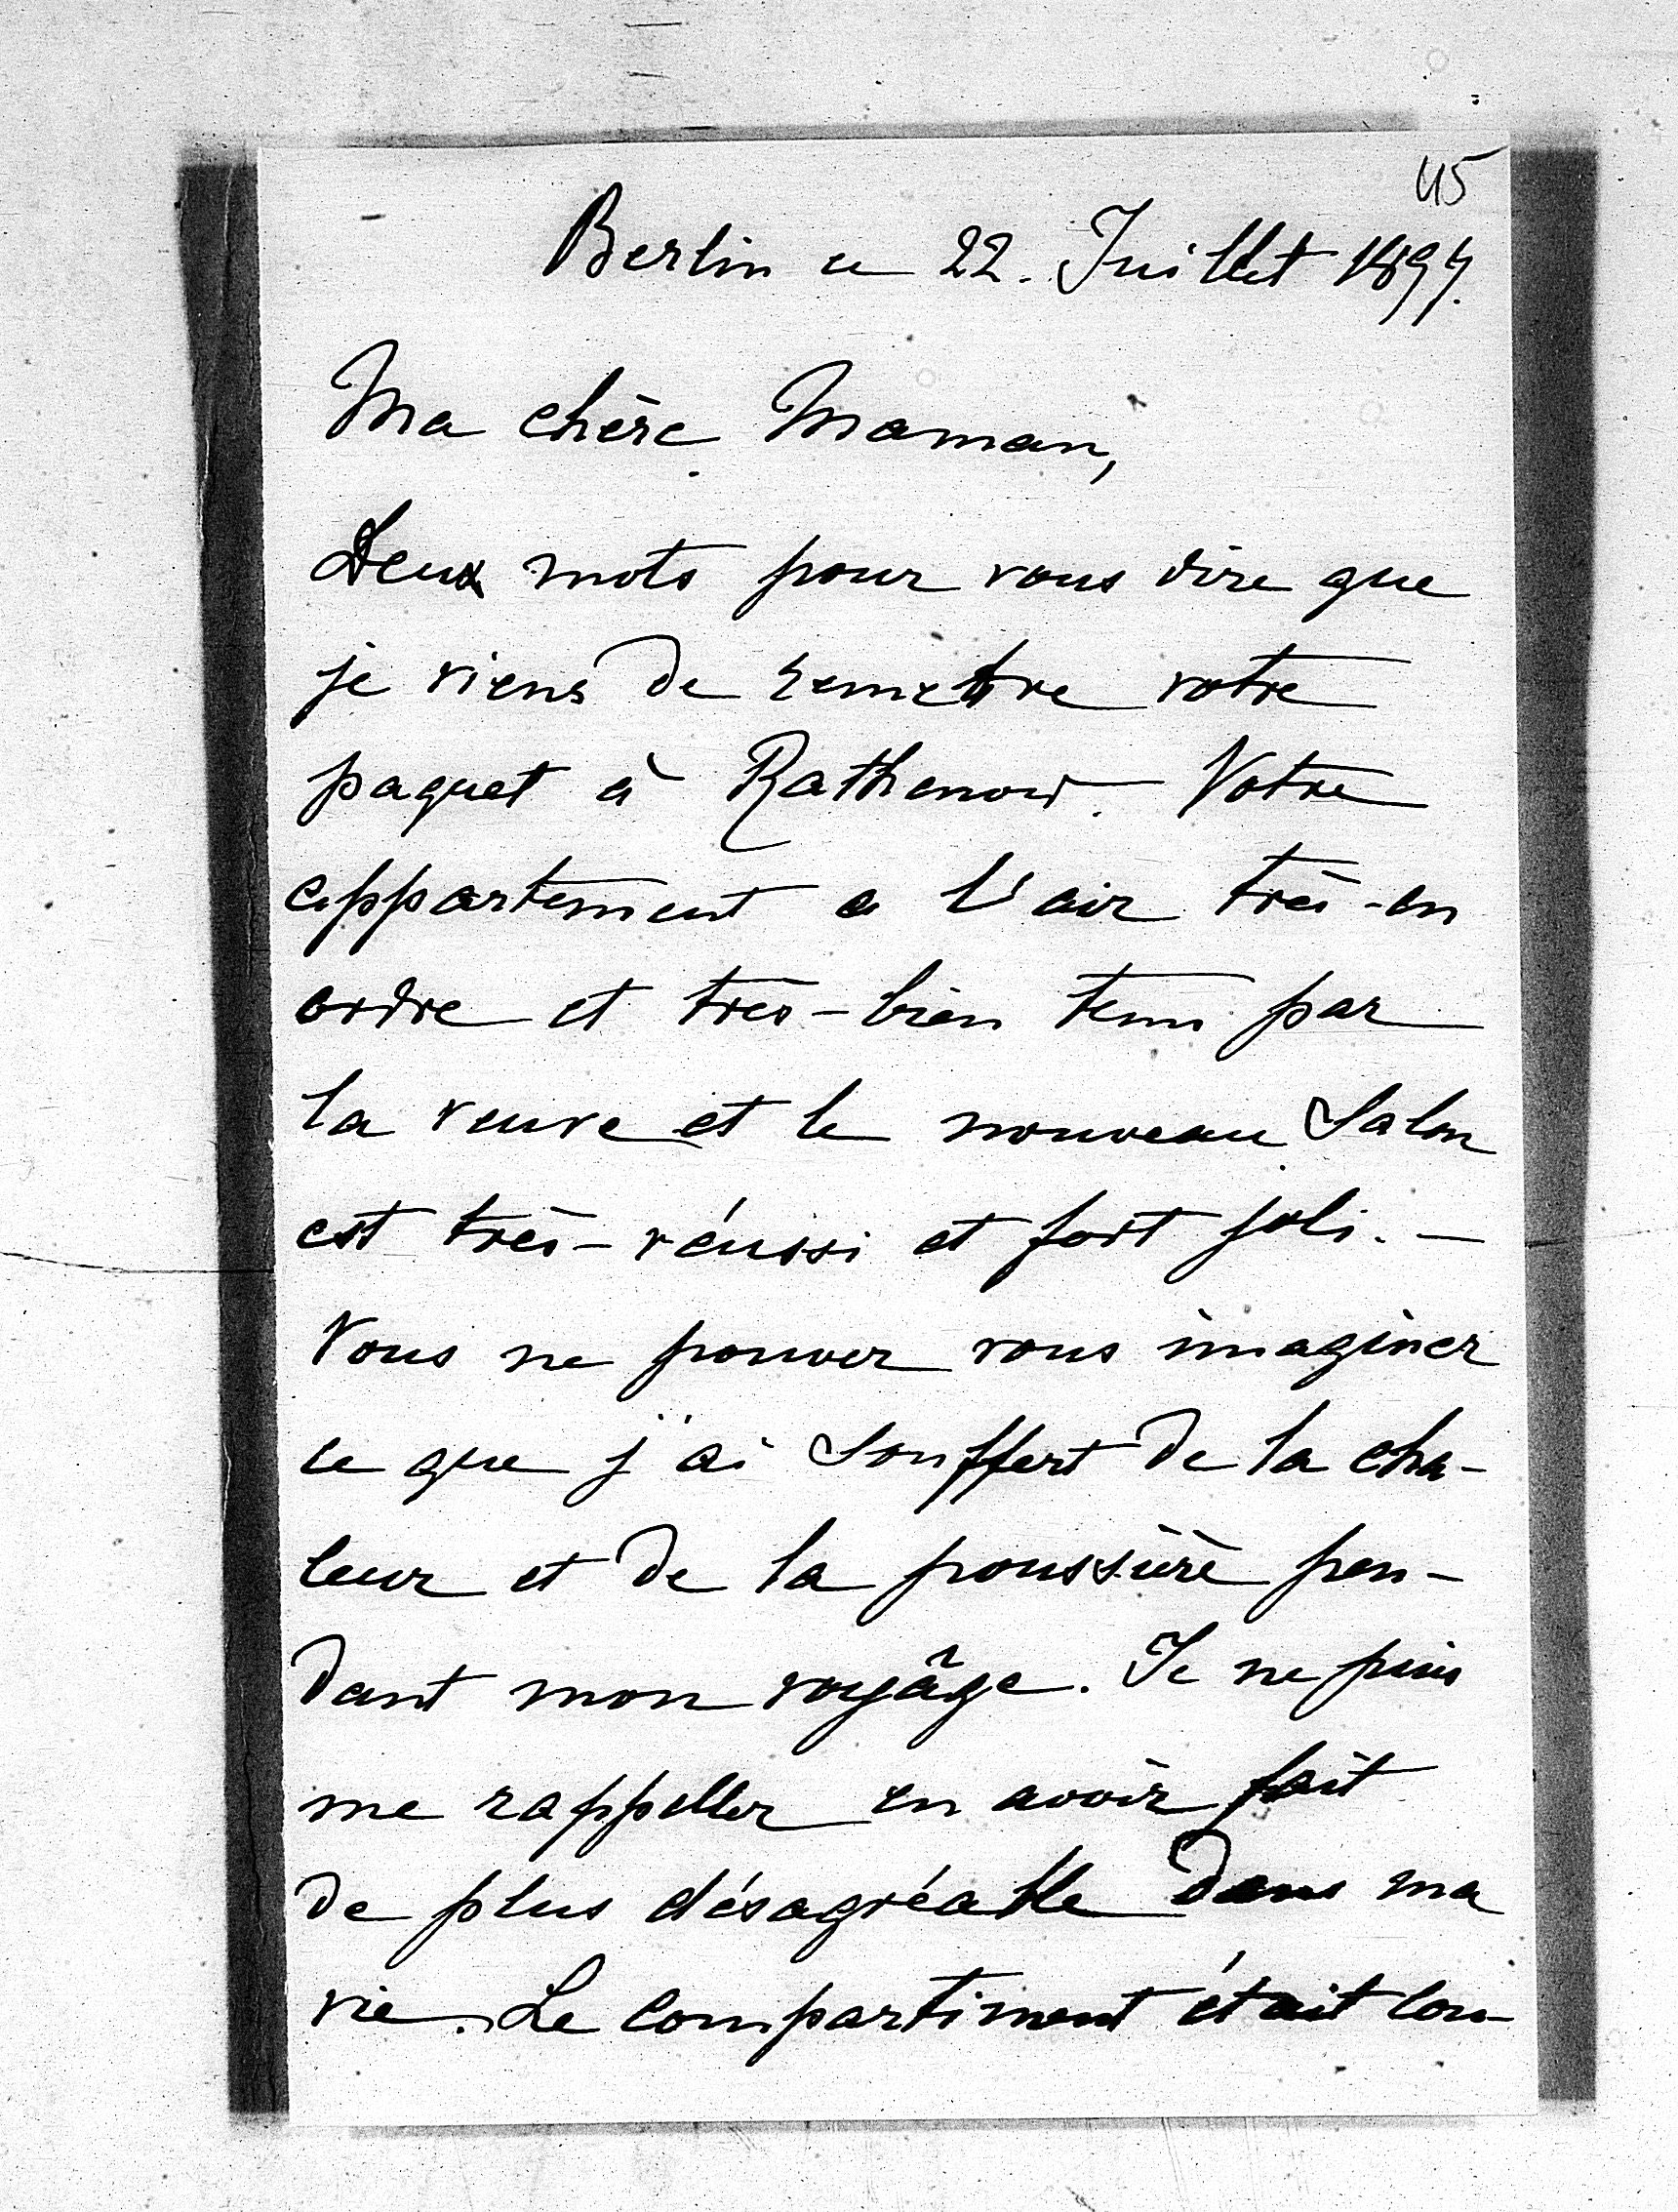 45
Berlin ce 22. Juillet 1897.
Ma chère Maman,
Deux mots pour vous dire que
je viens de remettre votre
paquet à Rathenow. Votre
appartement a l'air très-en
ordre et très-bien tenu par
la veuve et le nouveau Salon
est très-réussi et fort joli. —
Vous ne pouvez vous imaginer
ce que j'ai souffert de la cha-
leur et de la poussière pen-
dant mon voyâge. Je ne puis
me rappeller en avoir fait
de plus désagréable dans ma
vie. Le compartiment était con-